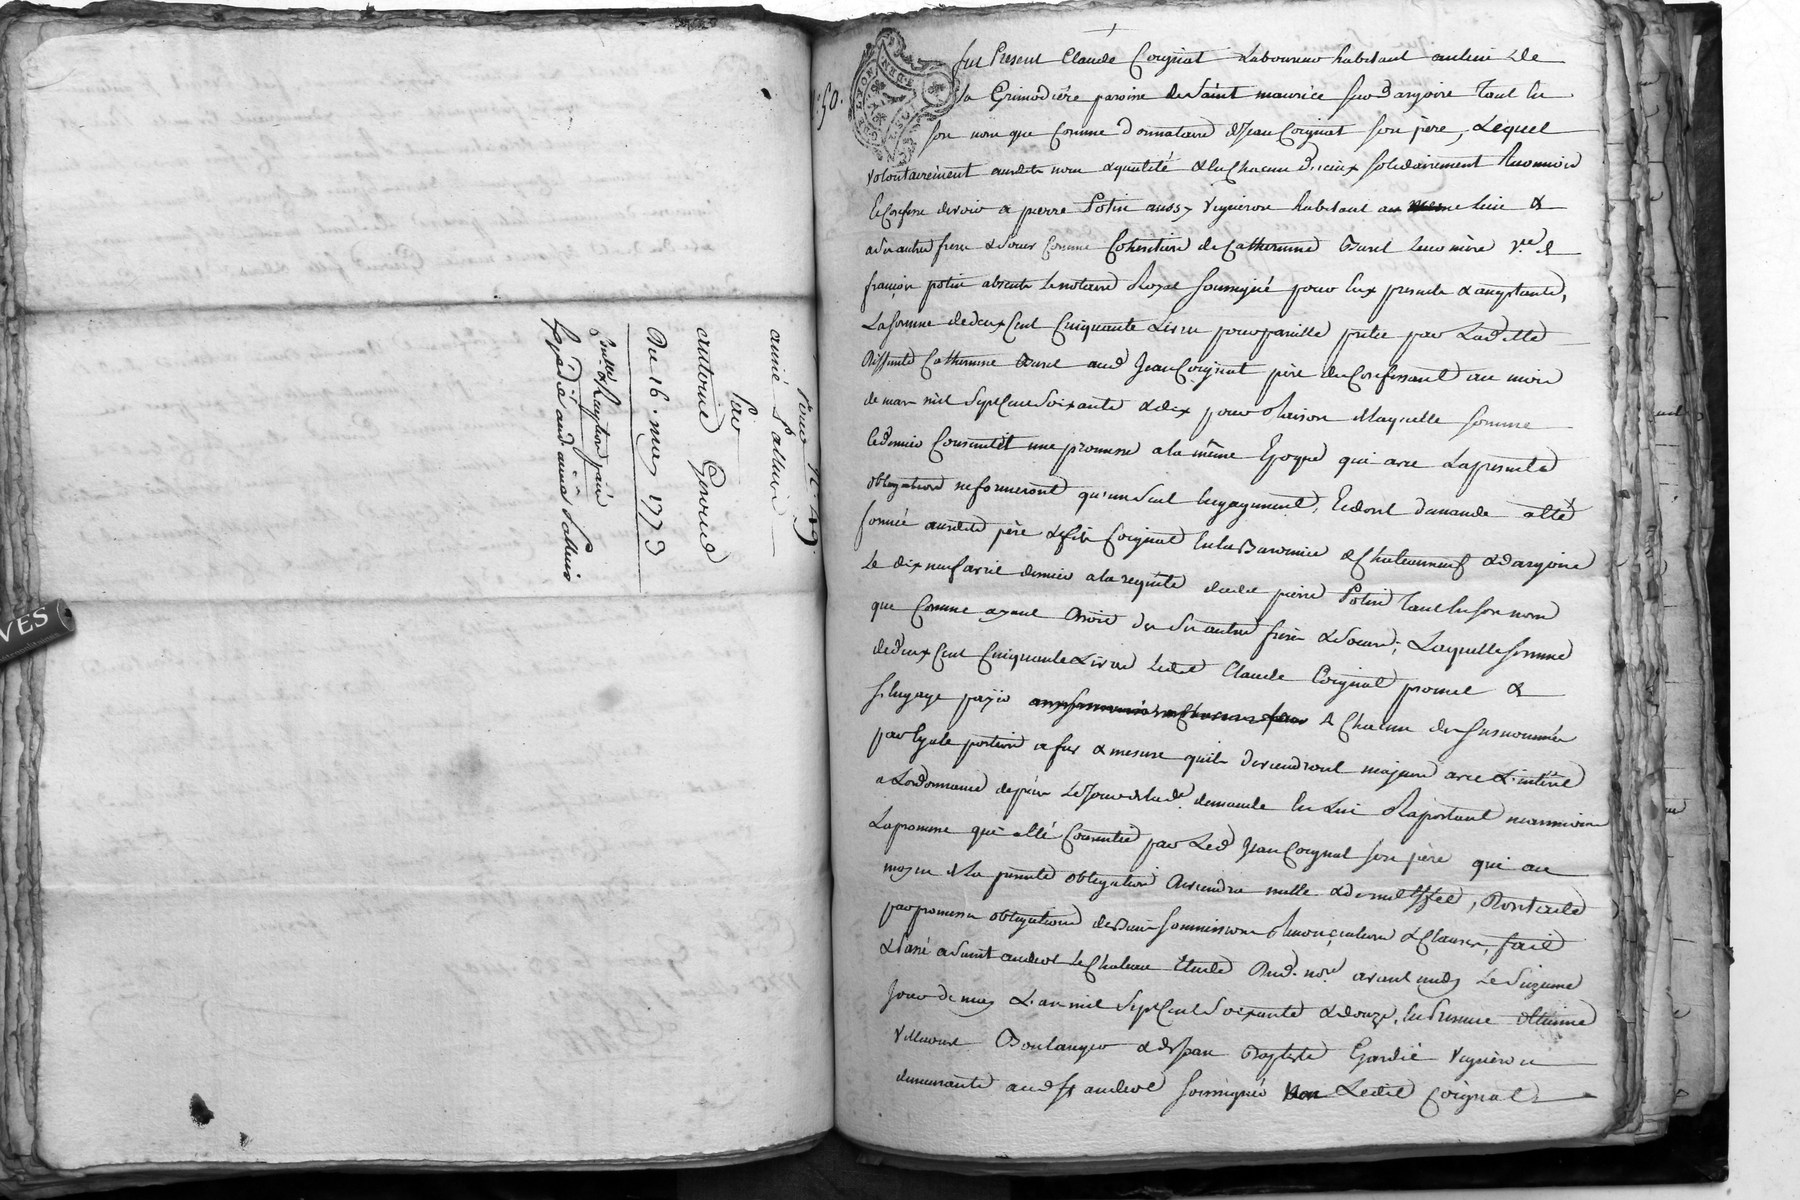 Pour N.° 49.
aimé Pallure
par
antoine Geroud
Du 16. may 1773
Expédié aud aimé Pallure
50.
fut Present Claude Coignat Laboureur habitant au lieu de
la Grimodiére paroisse de Saint maurice sur Dargoire tant en
son nom que Comme donnataire de Jean Coignat son père, Lequel
volontairement ausdits nom & qualité & en Chacun d'iceux solidairement Reconnoit
& Confesse devoir a pierre Potin aussy Vigneron habitant au meme lieu &
a ses autres freres & sœurs Comme Coheritiers de Catherinne Burel leur mère V.ve de
françois potin absents Le notaire Royal soussigné pour eux present & acceptant,
La somme de deux Cent Cinquante Livres pour pareille pretée par Laditte
Deffunte Catherinne Burel aud Jean Coignat père du Confessant au mois
de mars mil Sept Cent Soixante & dix pour Raison de laquelle somme
le dernier Consentit une promesse a la même Epoque qui avec La presente
obligation ne formeront qu'un seul Engagement, Et dont demande a été
formée ausdits père & fils Coignat en la Baronnie de Chateauneuf & dargoire
Le dix neuf avril dernier a la requête dudit pierre Potin tant en son nom
que Comme ayant droit de ses autres freres & sœurs; Laquelle somme
de deux Cent Cinquante Livres ledit Claude Coignat promet &
s'Engage payer a Chacun des susnommés
par Egale portion a fur & mesure qu'ils deviendront majeurs avec L'intérêt
a Lordonnance depuis Le Jour de lad.e demande en Lui Raportant neanmoins
La promesse qui a été Consentie par Led Jean Coignat son père qui au
moyen de La presente obligation deviendra nulle & de nul effet,
par promesses obligations de Biens soumissions Renonciations & Clauses, fait
& Passé a Saint andeol Le Chateau Etude Dud. no.re avant midy Le Seizieme
Jour de may L'an mil Sept Cent Soixante & douze, en Presence d'Etienne
Boulanger & de Jean Baptiste Gardié Vigneron
demeurants aud St andeol soussignés Ledit Coignat